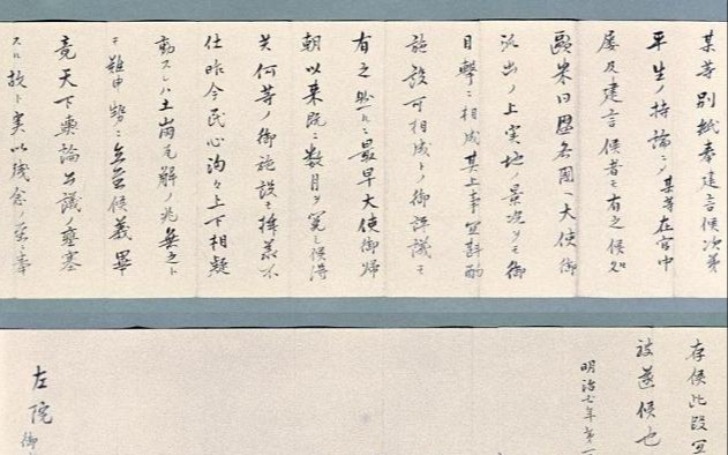 某等別紙奉建言候次第
平生ノ持論ニ〆某等在官中
屡及建言候者モ有之候処
歐米同盟各國ヘ大使御
派出ノ上実地ノ景況ヲモ御
目撃ニ相成其上事宜斟酌
施設可相成トノ御評議モ
有之然ルニ最早大使御帰
朝以来既ニ数月ヲ閲シ候得
共何等ノ御施設モ拝承不
仕昨今民心洶々上下相疑
動スレハ土崩瓦解ノ兆無之ト
モ難申勢ニ立至候義畢
竟天下輿論公議ノ壅塞
スル故ト実以残念ノ至ニ奉
存候此段宜
被遂候也
明治七年第一
左院 御